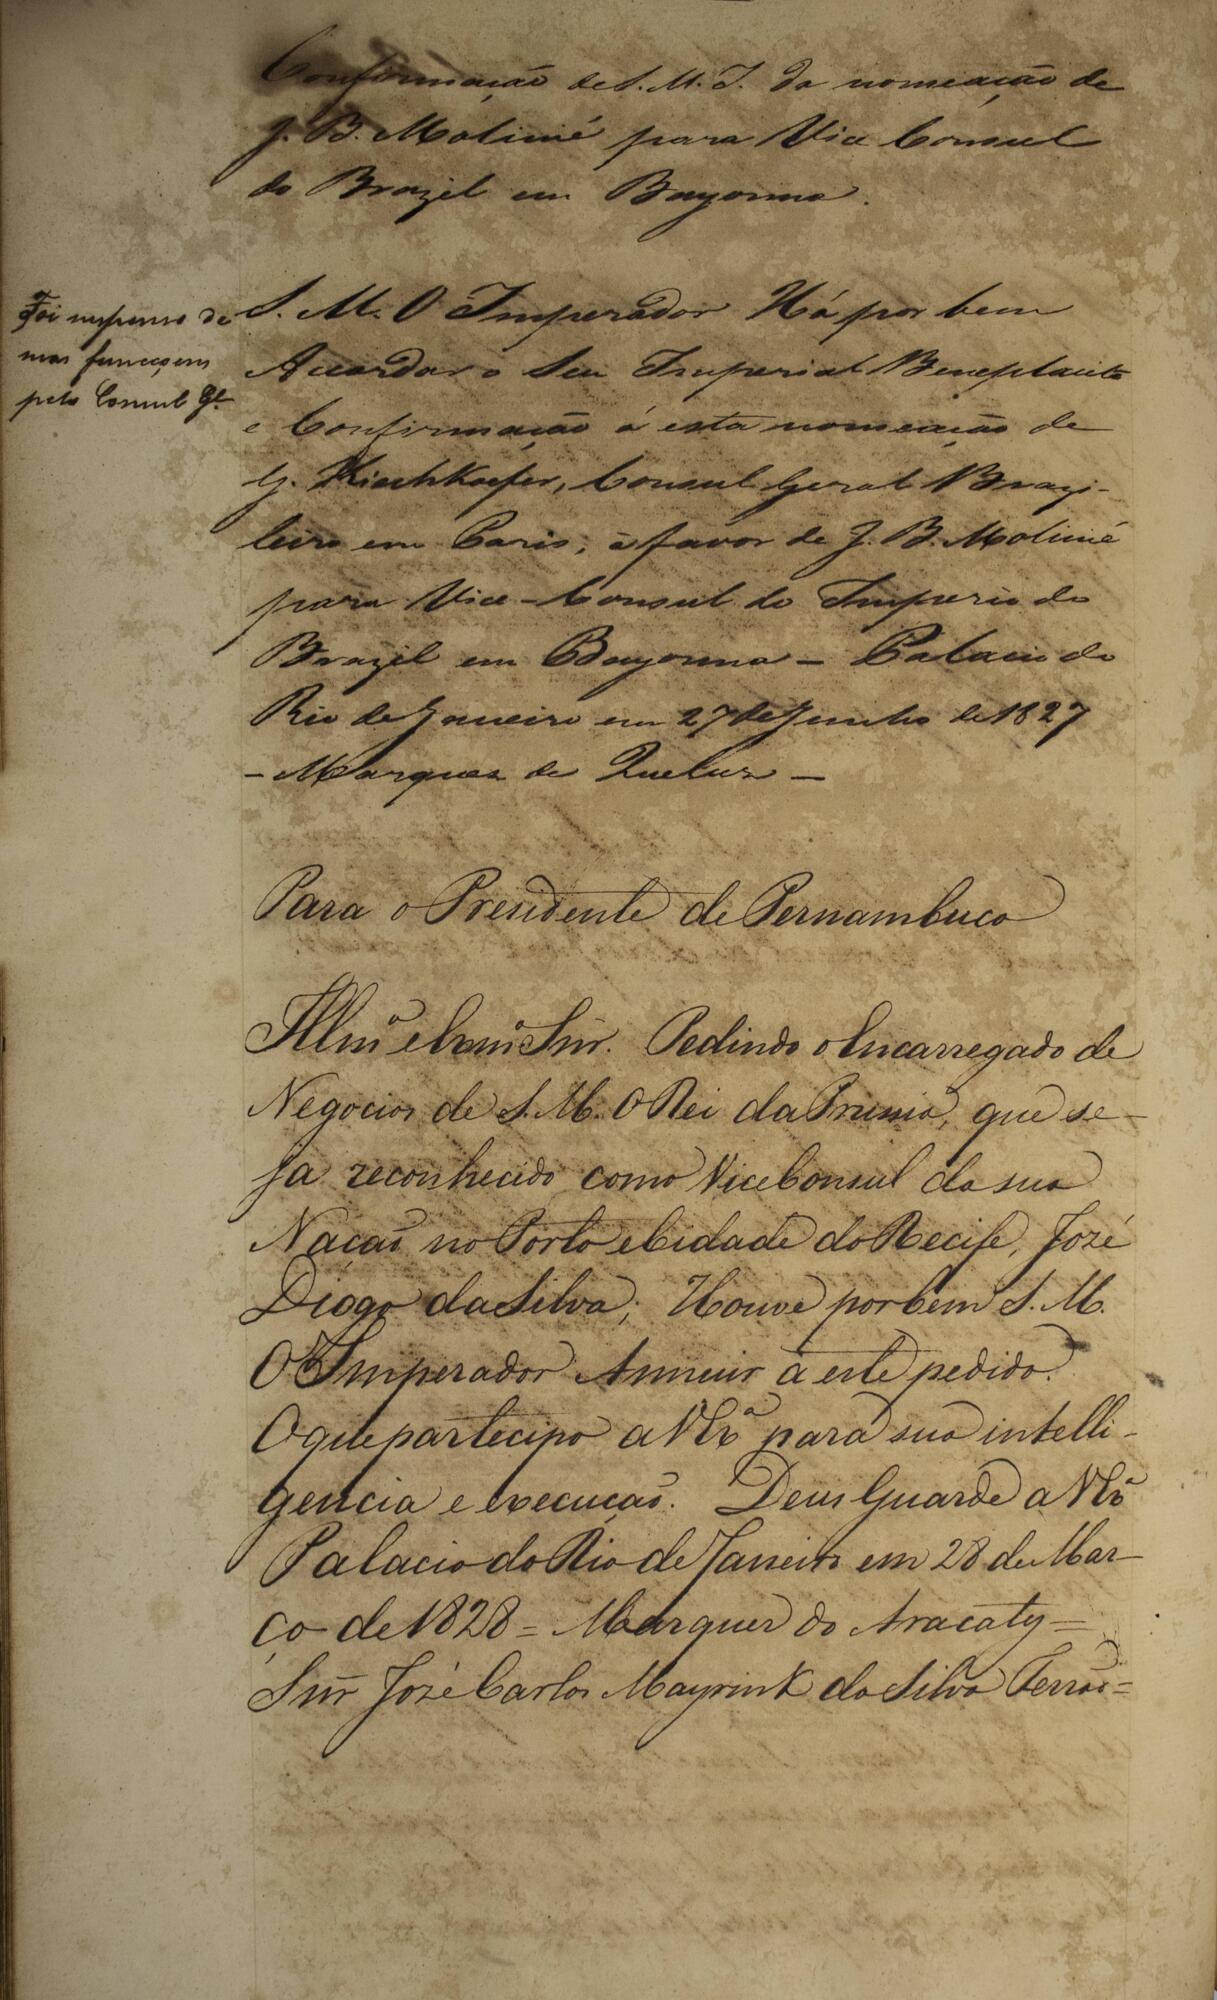 Confirmação de S. M. I. da nomeação de
J. B. Molinié para Vice Consul
do Brazil em Bayonna.
Foi suspenso de
suas funcçoens
pelo Consul Gl.
S. M. O Imperador Há por bem
Accordar o Seu Imperial Beneplacito
e Confirmação á esta nomeação de
G. Kieckhoefer, Consul Geral Brazi-
leiro em Paris, à favor de J. B. Molinié
para Vice-Consul do Imperio do
Brazil em Bayonna — Palacio do
Rio de Janeiro em 27 de Junho de 1827
— Marquez de Queluz —
Para o Presidente de Pernambuco
Illmº e Exmº Snr. Pedindo o Encarregado de
Negocios de S. M. O Rei da Prussia, que se-
ja reconhecido como Vice Consul da sua
Nação no Porto e Cidade do Recife, José
Diogo da Silva; Houve por bem S. M.
O Imperador Annuir á este pedido.
O que partecipo a V Exª para sua intelli-
gencia e execução. Deus Guarde a V Exª
Palacio do Rio de Janeiro em 28 de Mar-
ço de 1828 = Marquez do Aracaty =
Snr José Carlos Mayrink da Silva Ferrão =